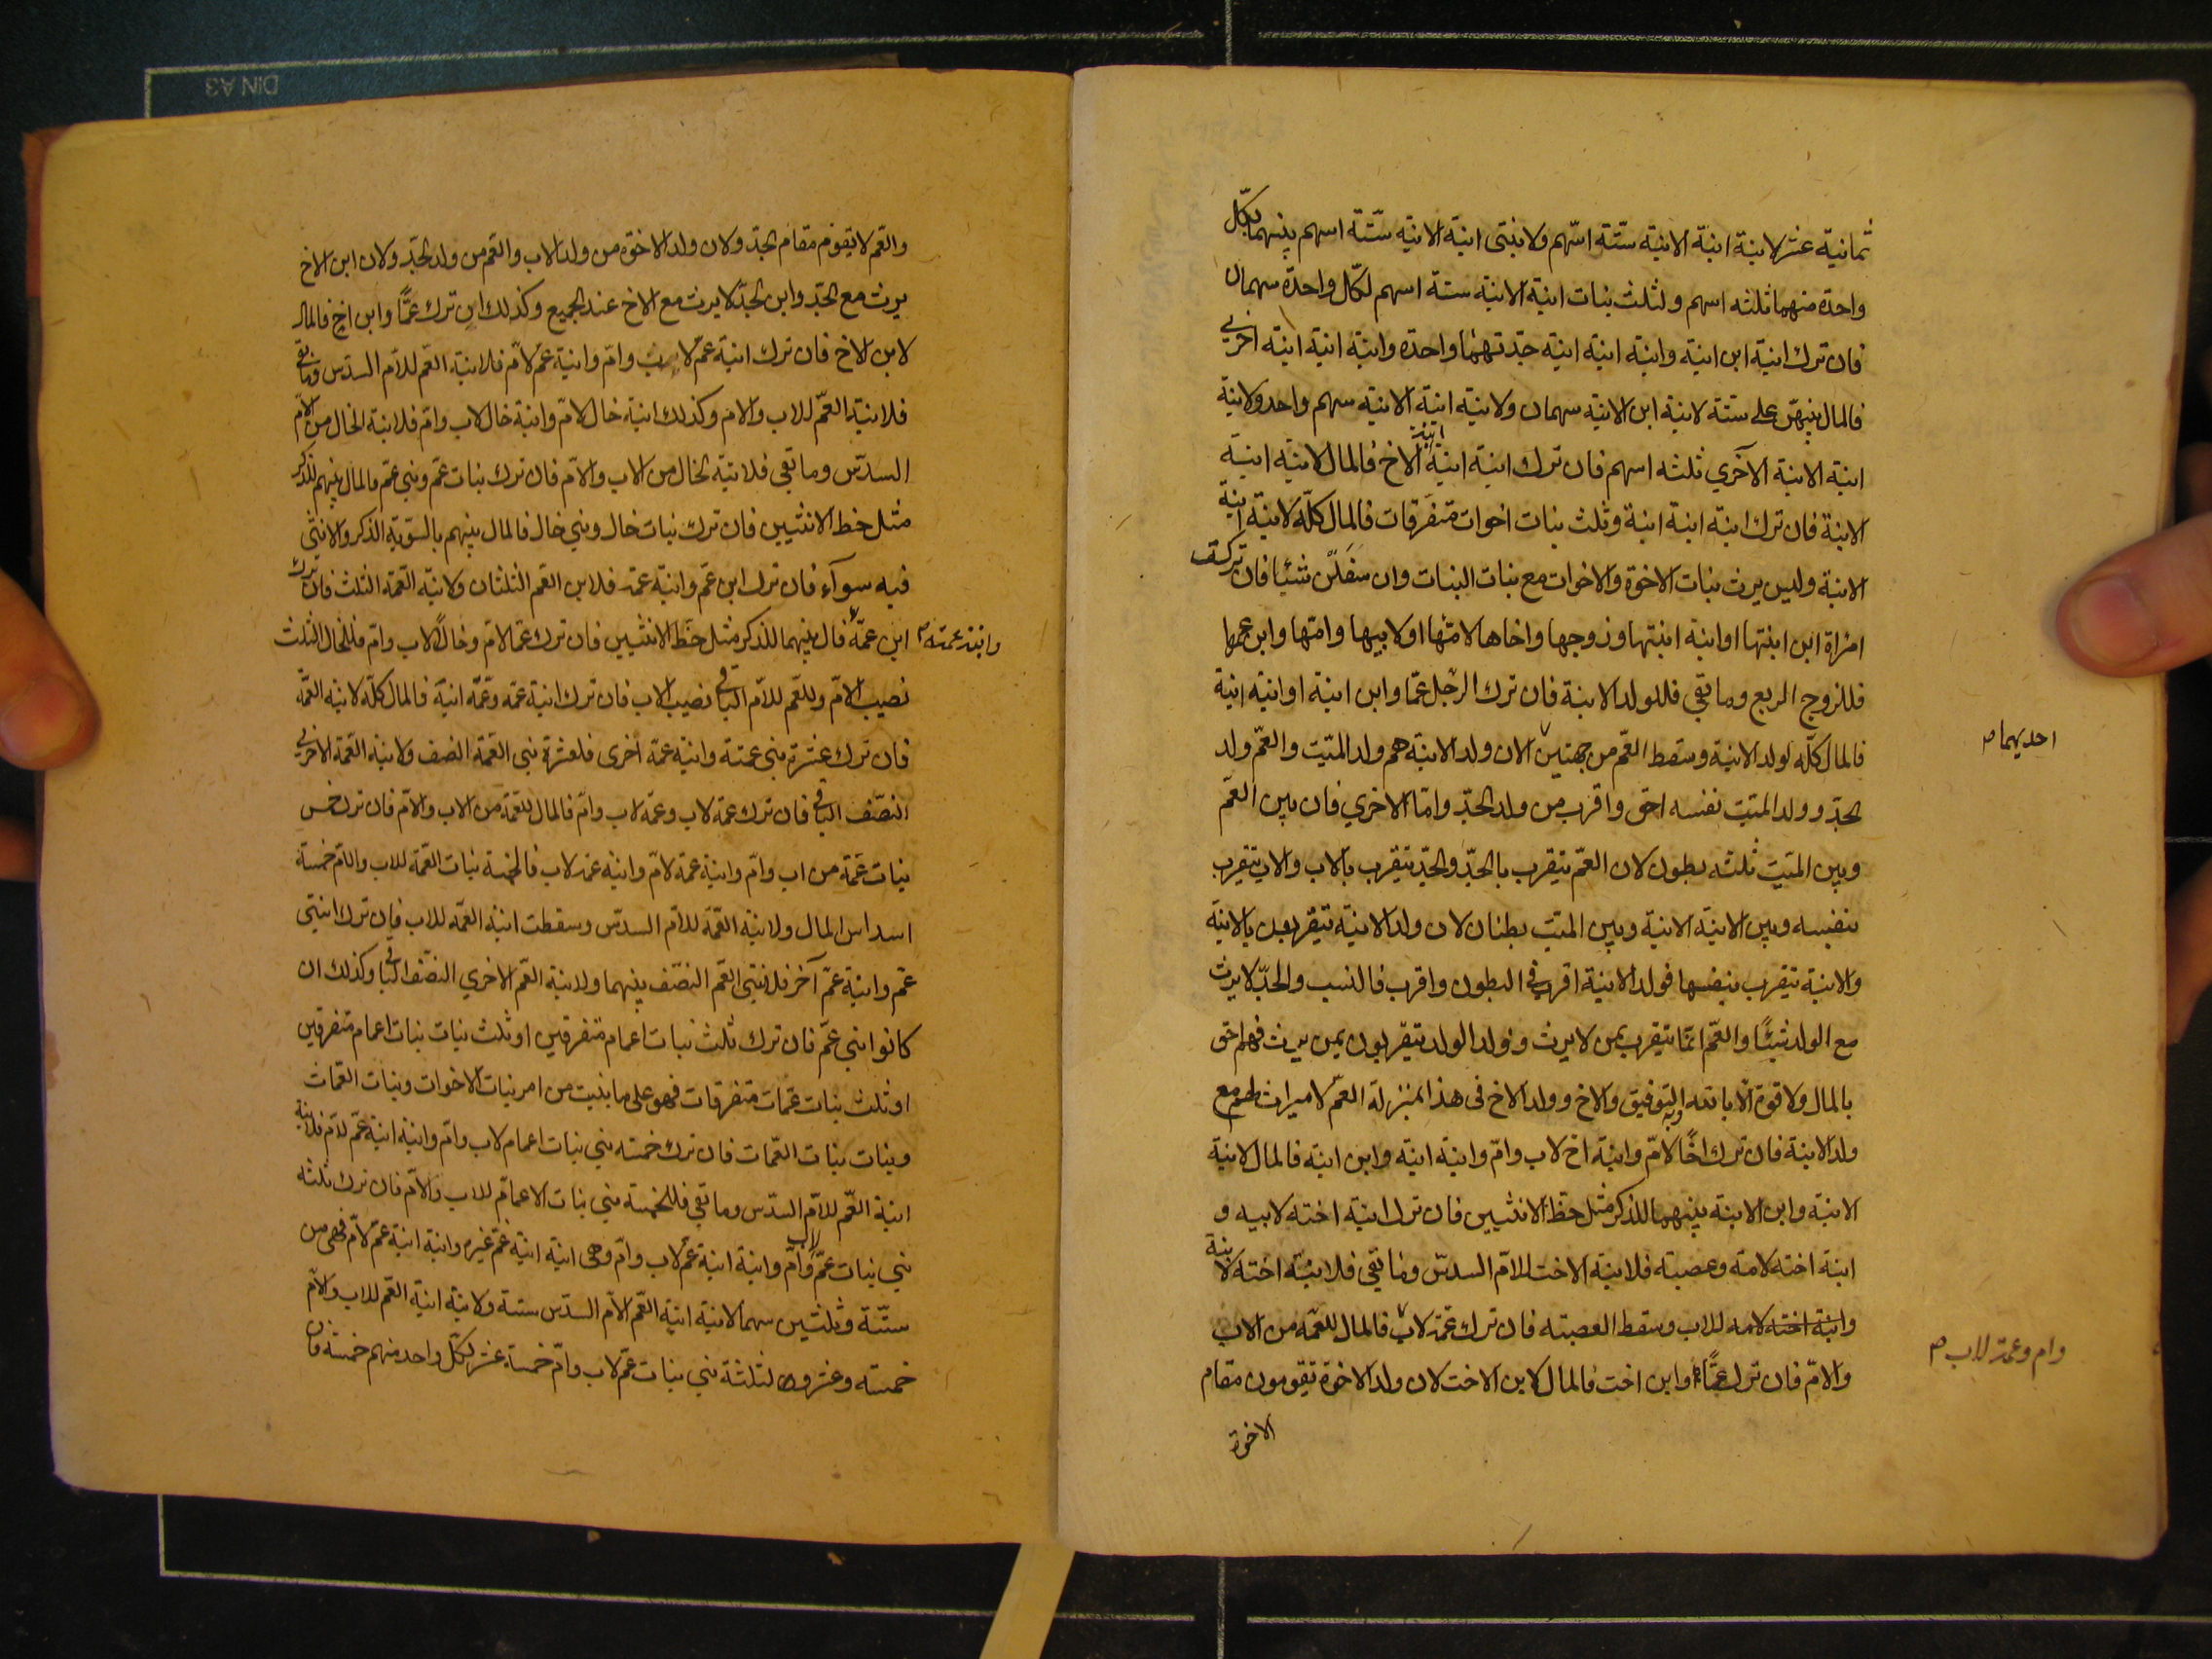 ثمانية عشر لابنة ابنة الابنة ستة اسهم ولابنتى ابنة الابنة ستة اسهم بينهما لكل
واحدة منهما ثلثه اسهم ولثلث بنات ابنة الابنة ستة اسهم لكل واحدة سهمان
فان ترك ابنة ابن ابنة وابنة ابنة ابنة جدتهما واحدة وابنة ابنة ابنة اخرى
فالمال بينهن على ستة لابنة ابن الابنة سهمان ولابنة ابنة الابنة سهم واحد ولابنة
ابنة الابنة الاخرى ثلثه اسهم فان ترك ابنة ابنة ابنة وابنة الاخ فالمال لابنة ابنة
الابنة فان ترك ابنة ابنة ابنة وثلث بنات اخوات متفرقات فالمال كله لابنة ابنة
الابنة وليس يرث بنات الاخوة والاخوات مع بنات البنات وان سفلن شيئا فان تركت
امراة ابن ابنتها او ابنة ابنتها وزوجها واخاها لامها او لابيها وامها وابن عمها
فللزوج الربع وما بقي فللولد الابنة فان ترك الرجل عما وابن ابنة او ابنة ابنة
فالمال كله لولد الابنة وسقط العم من جهتين لان ولد الابنة هم ولد الميت والعم ولد
احديهما ص
الجد وولد الميت نفسه احق واقرب من ولد الجد واما الاخرى فان بين العم
وبين الميت ثلثه بطون لان العم يتقرب بالجد والجد يتقرب بالاب والاب يتقرب
بنفسه وبين الابنة الابنة وبين الميت بطنان لان ولد الابنة يتقربون بالابنة
والابنة تتقرب بنفسها فولد الابنة اقرب في البطون واقرب فالنسب والجد لا يرث
مع الولد شيئا والعم انما يتقرب بمن لا يرث وولد الولد يتقربون بمن يرث فهم احق
بالمال ولا قوة الا بالله وبه التوفيق والاخ وولد الاخ فى هذا بمنزلة العم لا ميراث لهم مع
ولد الابنة فان ترك اخا لام وابنة اخ لاب وام وابنة ابنة وابن ابنة فالمال لابنة
الابنة وابن الابنة بينهما للذكر مثل حظ الانثيين فان ترك ابنة اخته لابيه و
ابنة اخته لامه وعصبة فلابنة الاخت للام السدس وما بقي فلابنة اخته لا بنة
وابنة اخته لامه للاب وسقط العصبة فان ترك عمة لاب فالمال للعمة من الاب
وام وعمة للاب ص
والام فان ترك عما وابن اخت فالمال لابن الاخت لان ولد الاخوة يقومون مقام
الاخوة
والعم لا يقوم مقام الجد ولان ولد الاخوة من ولد الاب والعم من ولد الجد ولان ابن الاخ
يرث مع الجد وابن الجد لا يرث مع الاخ عند الجميع وكذلك ان ترك عما وابن اخ فالمال
لابن الاخ فان ترك ابنة عم لاب وام وابنة عم لام فلابنة العم للام السدس وما بقي
فلابنة العم للاب والام وكذلك ابنة خال لام وابنة خال لاب وام فلابنة الخال من الام
السدس وما بقي فلابنة الخال من الاب والام فان ترك بنات عم وبنى عم فالمال بينهم للذكر
مثل حظ الانثيين فان ترك بنات خال وبني خال فالمال بينهم بالسوية الذكر والانثى
فيه سواء فان ترك ابن عم وابنة عمة فلابن العم الثلثان ولابنة العمة الثلث فان ترك
ابن عمة فال بينهما للذكر مثل حظ الانثيين فان ترك عما لام وخالا لاب وام فللخال الثلث
وابنة عمته ص
نصيب الام وللعم للام الباقي نصيب الاب فان ترك ابنة عمة وعمة ابنة فالمال كله لابنة العمة
فان ترك عشرة بنى عمته وابنة عمة اخرى فلعشرة بنى العمة النصف ولابنة العمة الاخرى
النصف الباقي فان ترك عمة لاب وعمة لاب وام فالمال للعمة من الاب والام فان ترك خمس
بنات عمة من اب وام وابنة عمة لام وابنة عمة لاب فالخمسة بنات العمة للاب والام خمسة
اسداس المال ولابنة العمة للام السدس وسقطت ابنة العمة للاب فان ترك ابنتى
عم وابنة عم آخر فلابنتى العم النصف بينهما ولابنة العم الاخرى النصف الباقي وكذلك ان
كانوا بنى عم فان ترك ثلث بنات اعمام متفرقين او ثلث بنات بنات اعمام متفرقين
او ثلث بنات عمات متفرقات فهو على ما بينت من امر بنات الاخوات وبنات العمات
وبنات بنات العمات فان ترك خمسه بني بنات اعمام لاب وام وابنة ابنة عم لام فلابنة
ابنة العم للام السدس وما بقي فللخمسة بني بنات الاعمام للاب والام فان ترك ثلثه
بني بنات عم لاب وام وابنة ابنة عم لاب وام وهى ابنة ابنة عم غيره وابنة ابنة عم لام فهى من
ستة وثلثين سهما لابنة ابنة العم الام السدس ستة ولابنة ابنة العم للاب والام
خمسة وعشرون لثلثة بني بنات عم لاب وام خمسة عشر لكل واحد منهم خمسة فان